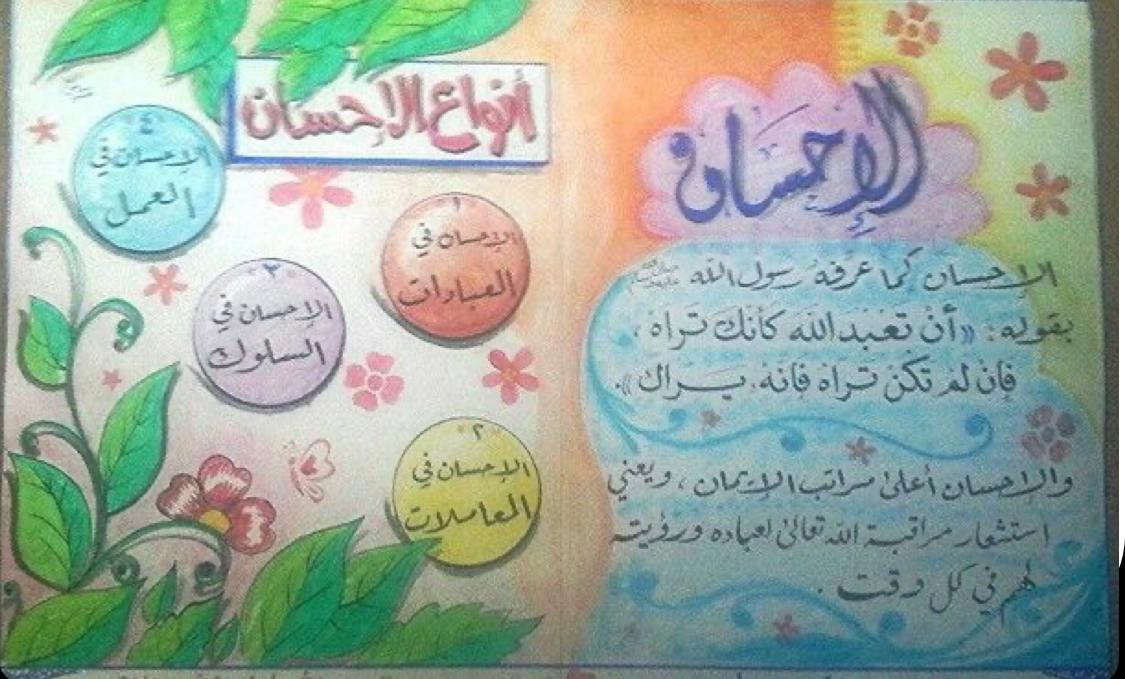 الإحسان
الإحسان كما عرّفه رسول الله ﷺ
بقوله: «أن تعبد الله كأنك تراه،
فإن لم تكن تراه فإنه يراك».
والإحسان أعلى مراتب الإيمان، ويعني
استشعار مراقبة الله تعالى لعباده ورؤيته
لهم في كل وقت.
أنواع الإحسان
١
الإحسان في
العبادات
٢
الإحسان في
المعاملات
٣
الإحسان في
السلوك
٤
الإحسان في
العمل